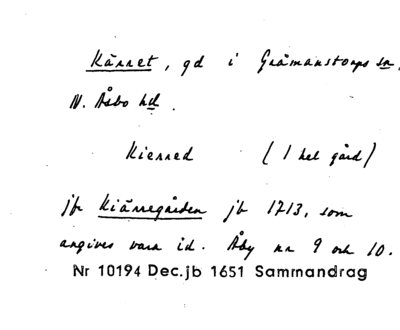 Kärret, gd i Gråmanstorps sn,
N. Åsbo hd.
Kierred (1 hel gård)
jfr Kiärregården jb 1713, som
angives vara id. Åby nr 9 och 10.
Nr 10194 Dec.jb 1651 Sammandrag